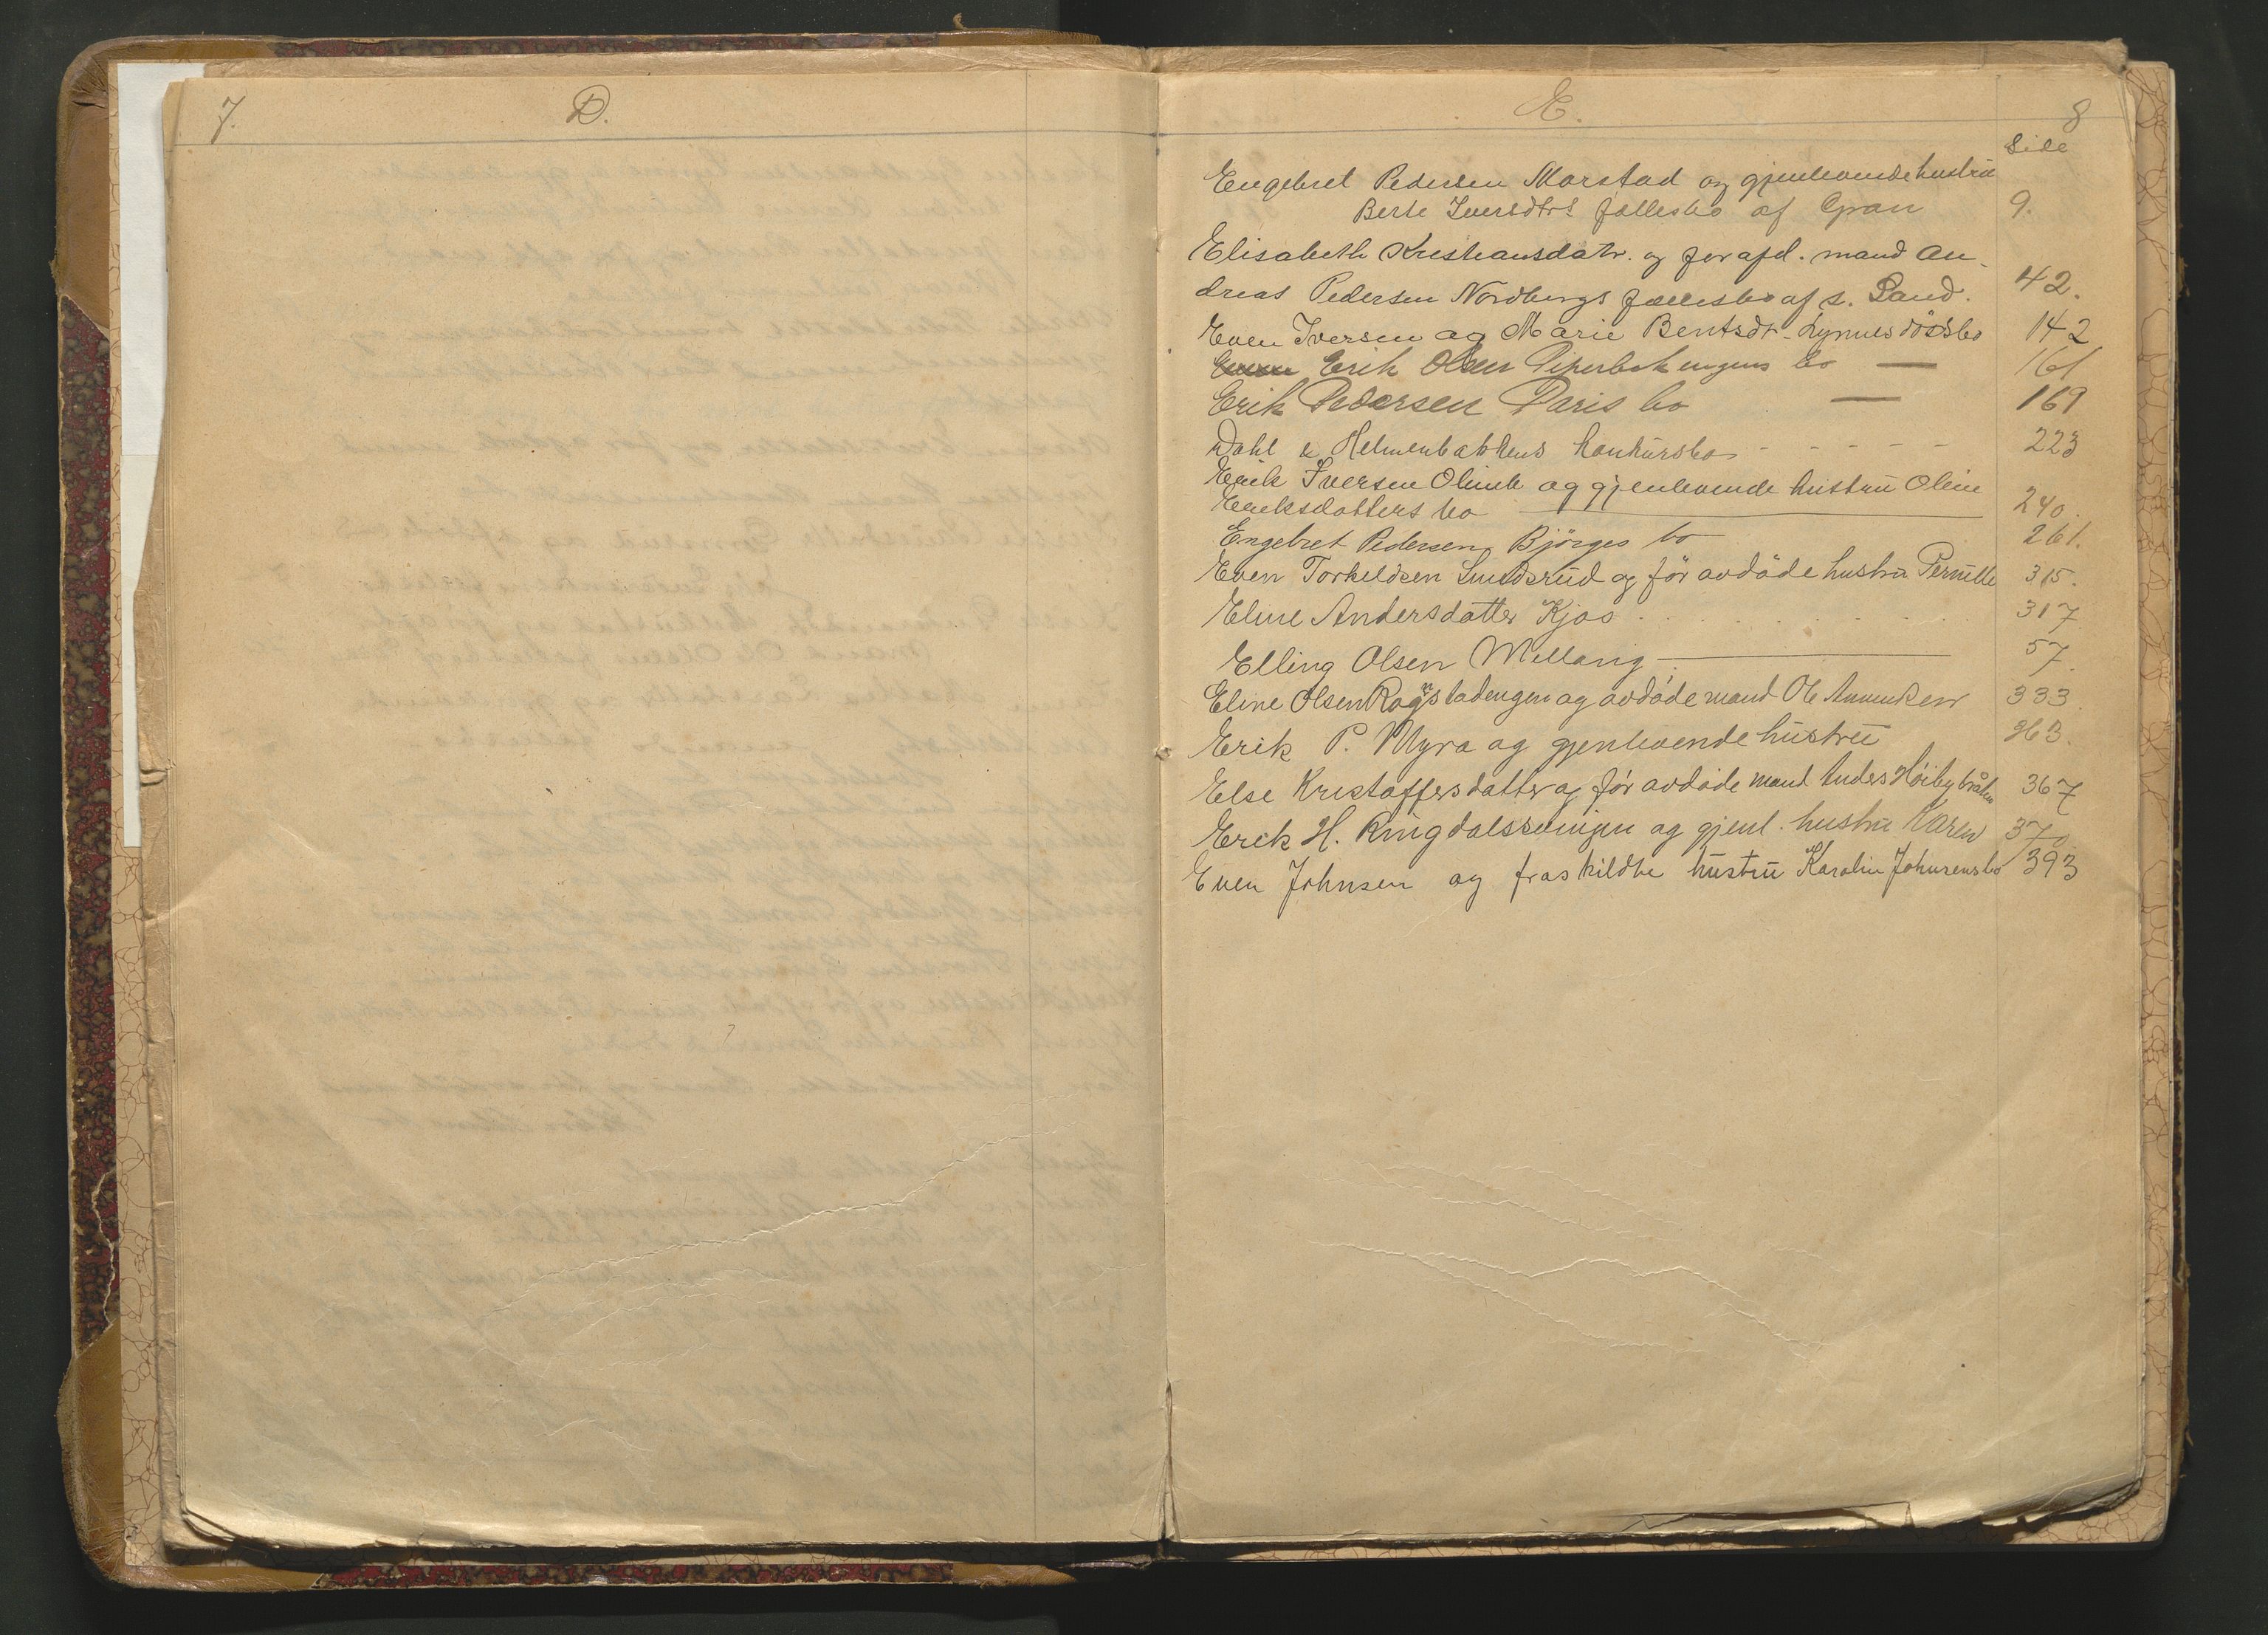 7.
D.
E.
8
Side
Engebret Pedersen Morstad og gjenlevende hustru
Berte Iversdtrs fællesbo af Gran 9.
Elisabeth Kristiansdatr. og for afd. mand An-
dreas Pedersen Nordbergs fællesbo af s. Land. 42.
Even Iversen og Marie Bentsdtr. Lynnes dödsbo 142
Erik Olsen bo — 161
Erik Pedersen Paris bo — 169
Dahl & Helmenbakkens konkursbo - - - - - 223
Erik Iversen og gjenlevende hustru Oline
Eriksdatters bo 240.
Engebret Pedersen Björges bo 261.
Even Torkeldsen Smedsrud og för avdöde hustru Pernille 315.
Eline Andersdatter Kjos . . . . . . 317
Elling Olsen Mellang 57.
Eline Olsen og avdöde mand Ole Amundsen 333.
Erik P. Myra og gjenlevende hustru 363.
Else Kristoffersdatter og för avdöde mand Anders Höibybråten 367
Erik H. Ringdalseningen og gjenl. hustru Karen 370.
Even Johnsen og fraskildte hustru Karolin Johnsens bo 393